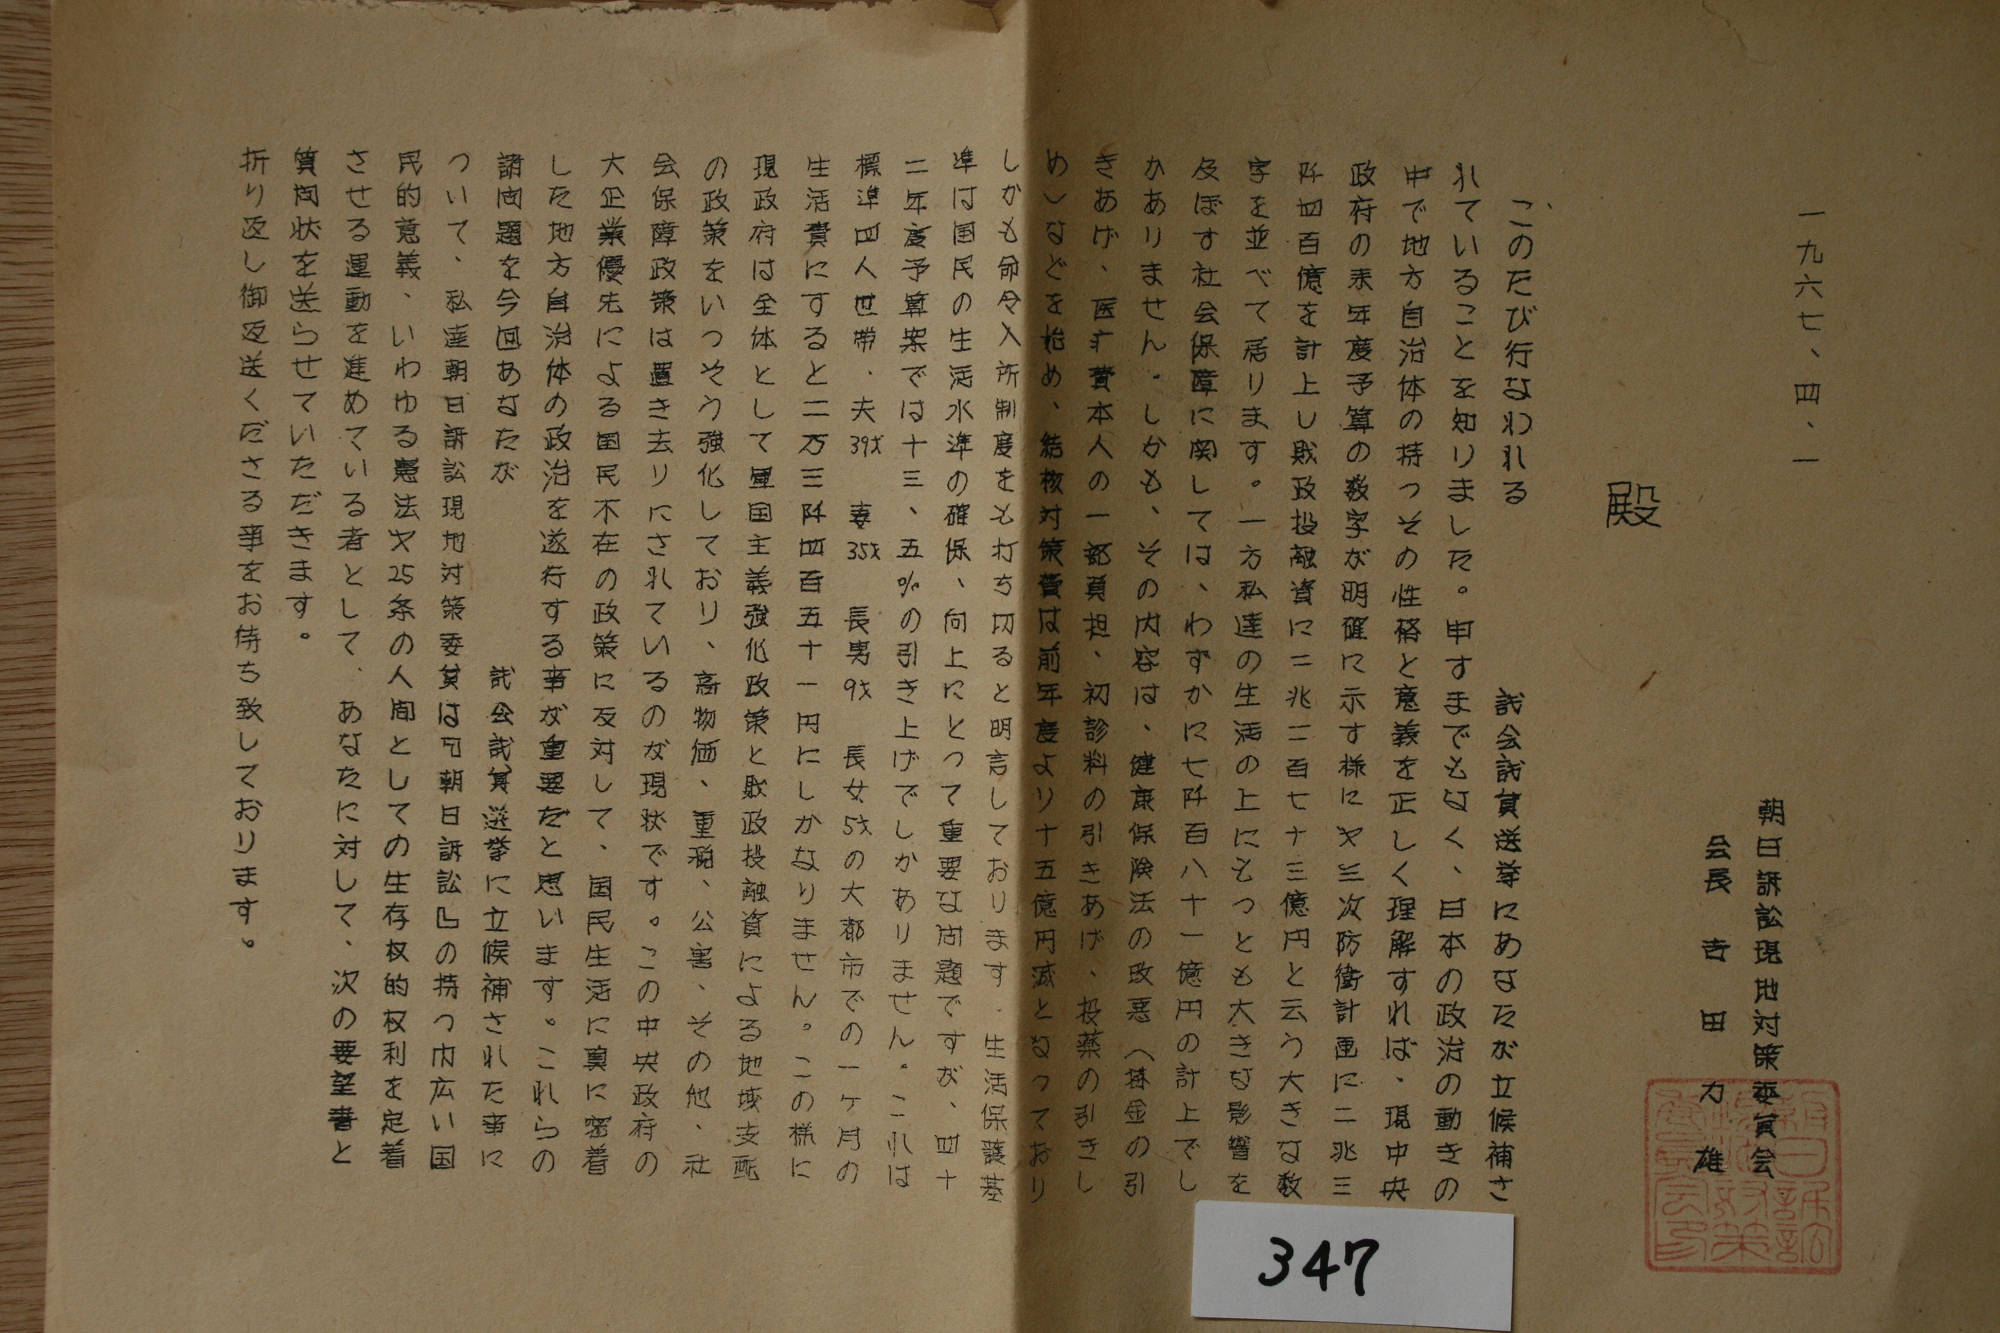 一九六七、四、一
朝日訴訟現地対策委員会
会長 吉田力雄
殿
このたび行なわれる 議会議員選挙にあなたが立候補さ
れていることを知りました。申すまでもなく、日本の政治の動きの
中で地方自治体の持つその性格と意義を正しく理解すれば、現中央
政府の来年度予算の数字が明確に示す様に才三次防衛計画に二兆三
阡四百億を計上し財政投融資に二兆二百七十三億円と云う大きな数
字を並べて居ります。一方私達の生活の上にもっとも大きな影響を
及ぼす社会保障に関しては、わずかに七阡百八十一億円の計上でし
かありません。しかも、その内容は、健康保険法の改悪(掛金の引
きあげ、医疗費本人の一部負担、初診料の引きあげ、投薬の引きし
め)などを始め、結核対策費は前年度より十五億円減となっており
しかも命令入所制度をも打ち切ると明言しております。生活保護基
準は国民の生活水準の確保、向上にとって重要な問題ですが、四十
二年度予算案では十三、五%の引き上げでしかありません。これは
標準四人世帯、夫39才 妻35才 長男9才 長女5才の大都市での一ヶ月の
生活費にすると二万三阡四百五十一円にしかなりません。この様に
現政府は全体として軍国主義強化政策と財政投融資による地域支配
の政策をいっそう強化しており、高物価、重税、公害、その他、社
会保障政策は置き去りにされているのが現状です。この中央政府の
大企業優先による国民不在の政策に反対して、国民生活に真に密着
した地方自治体の政治を遂行する事が重要だと思います。これらの
諸問題を今回あなたが 議会議員選挙に立候補された事に
ついて、私達朝日訴訟現地対策委員は『朝日訴訟』の持つ巾広い国
民的意義、いわゆる憲法才25条の人間としての生存权的权利を定着
させる運動を進めている者として、あなたに対して、次の要望書と
質問状を送らせていただきます。
折り返し御返送くださる事をお待ち致しております。
朝日訴訟
現地対策
委員会印
347